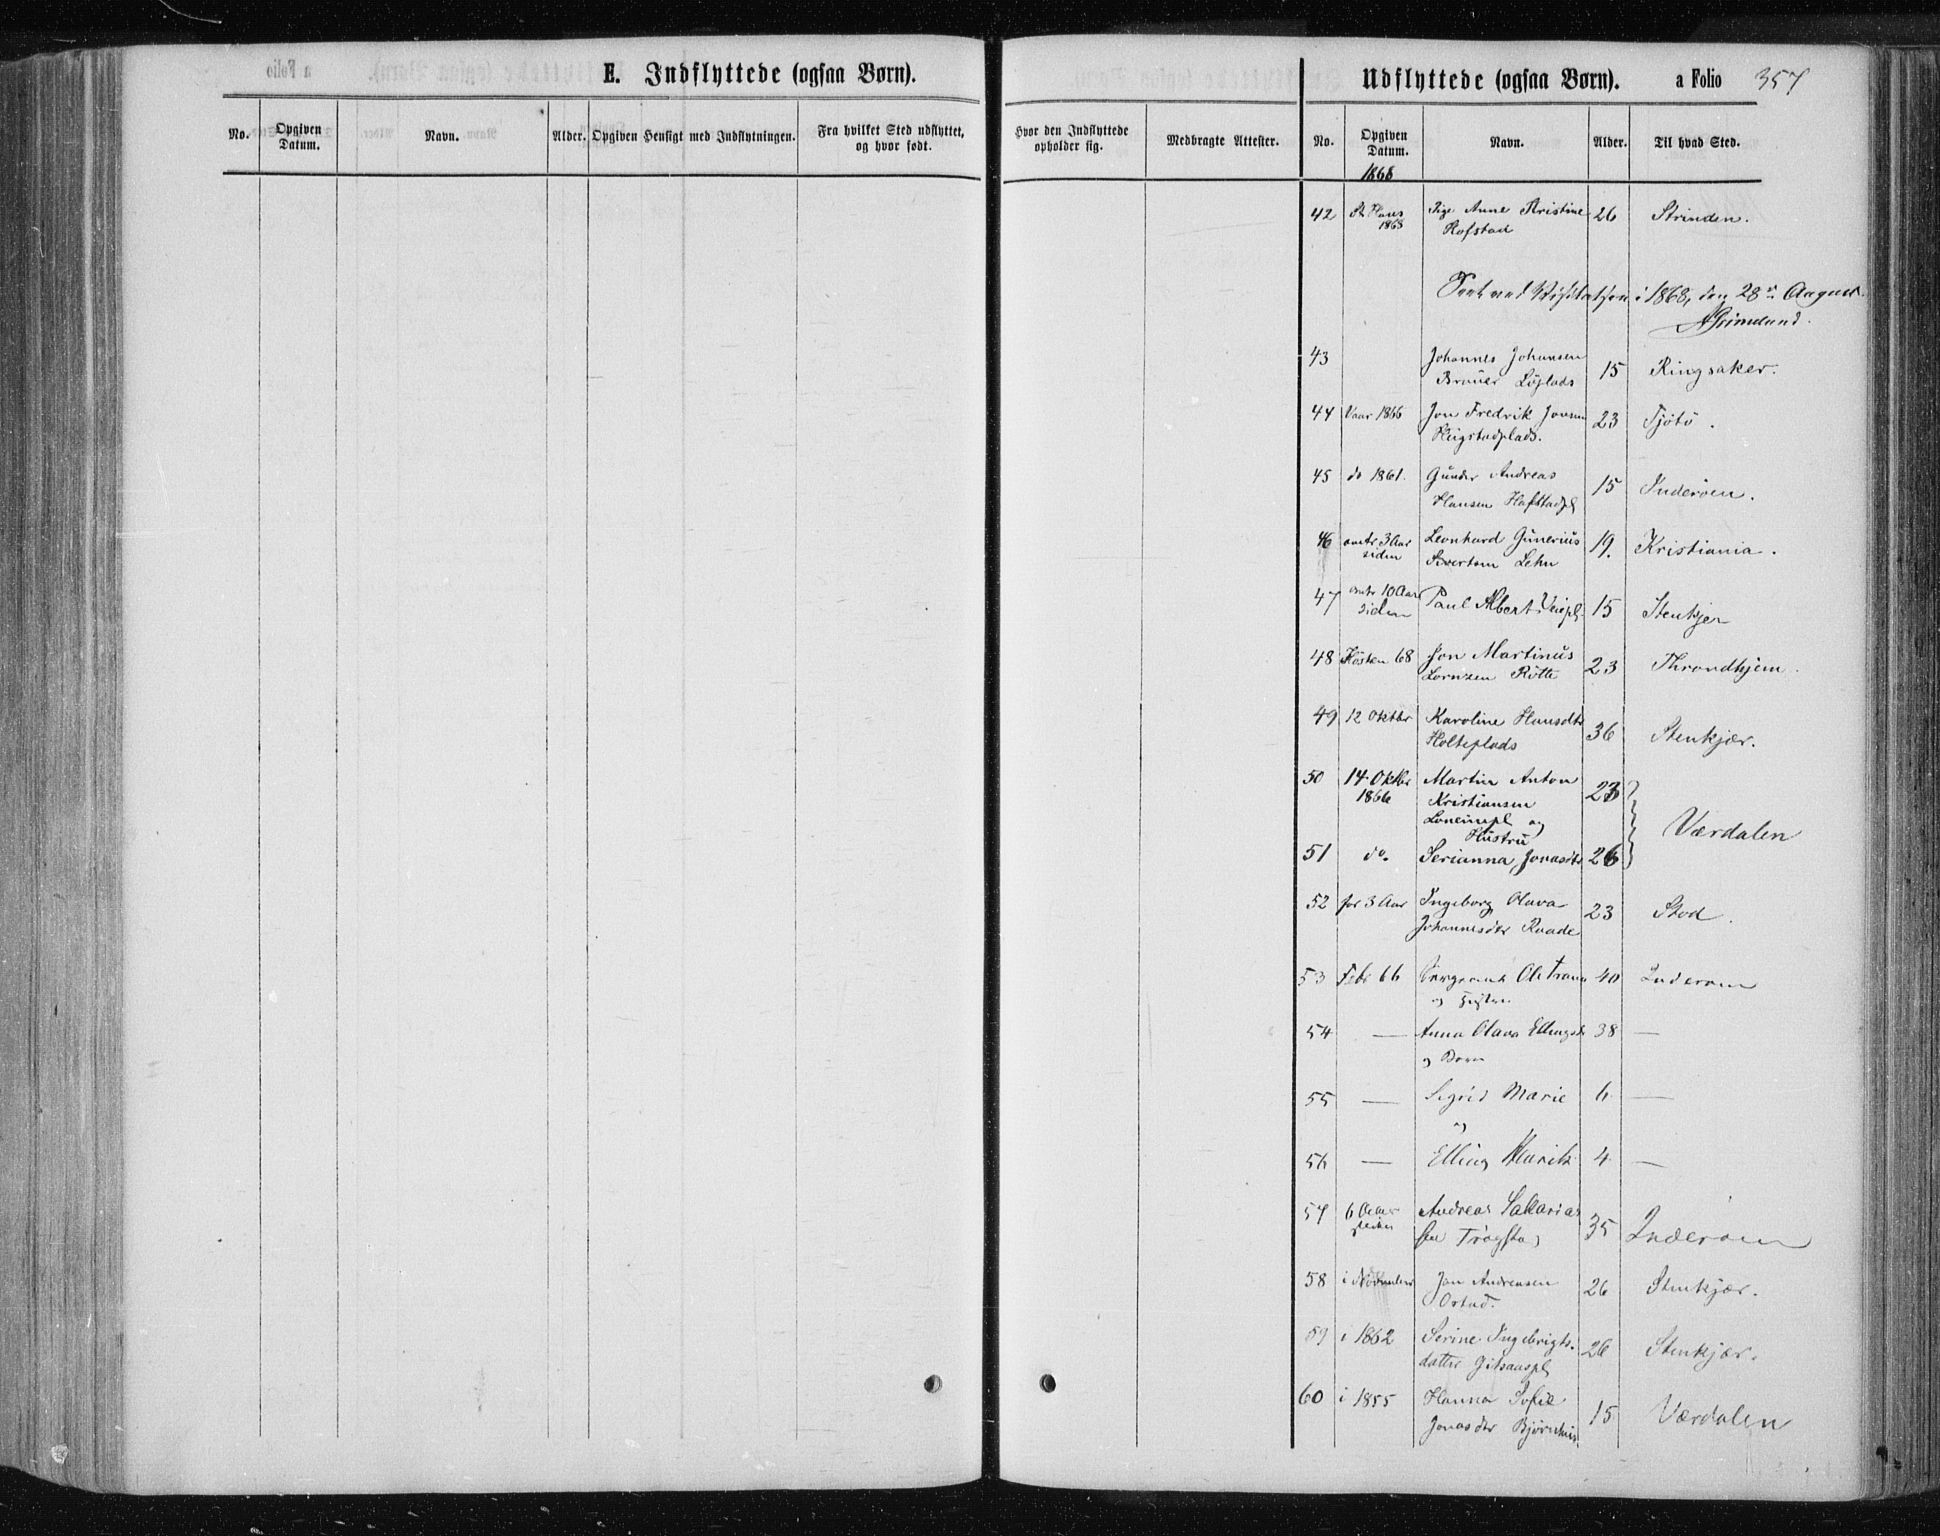 E. Indflyttede (ogsaa Børn).
No.
Opgiven Datum.
Navn.
Alder.
Opgiven Hensigt med Indflytningen.
Fra hvilket Sted udflyttet, og hvor født.
Hvor den Indflyttede opholder sig.
Medbragte Attester.
Udflyttede (ogsaa Børn). a Folio 357
No.
Opgiven Datum.
Navn.
Alder.
Til hvad Sted.
1868
42 St Hans Pige Anne Kristine 26 Strinden.
1868 Hofstad
Seet ved Visitatsen i 1868, den 28de August.
AGrimelund.
43 Johannes Johansen 15 Ringsaker.
Plads
44 Vaar 1866 Jon Fredrik Jonsen 23 Tjøtø.
Heigstadplads.
45 do 1861. Gunder Andreas 15 Inderøen.
Hansen Hafstadpl
46 omtr 3 Aar Leonhard Gunerius 19. Kristiania.
siden Sivertsen Lehn
47 omtr 10 Aar Paul Albert 15 Stenkjer
siden
48 Høsten 68 Jon Martinus 23 Throndhjem.
Lorntzen
49 12 Oktbr Karoline Hansdtr 36 Stenkjær.
Holteplads
50 14 Oktbr Martin Anton 23 Værdalen
1866 Kristiansen
og
Hustru
51 do. Serianna Jonasdtr 26
52 for 3 Aar Ingeborg Olava 23 Stod.
Johannesdtr
53 Febr 66 Ole 40 Inderøen
og
54 — Anna Olava Ellingsdr 38 —
og Børn
55 — Sigrid Marie 6 —
og
56 — Elling 4 —
57 6 Aar Andreas Sakarias 35 Inderøen
siden sen
58 i November Jon Andreasen 26 Stenkjær.
59 i 1862 Serine Ingebrigts- 26 Stenkjær.
datter
60 i 1855 Hanna Sofie 15 Værdalen
Jonasdtr